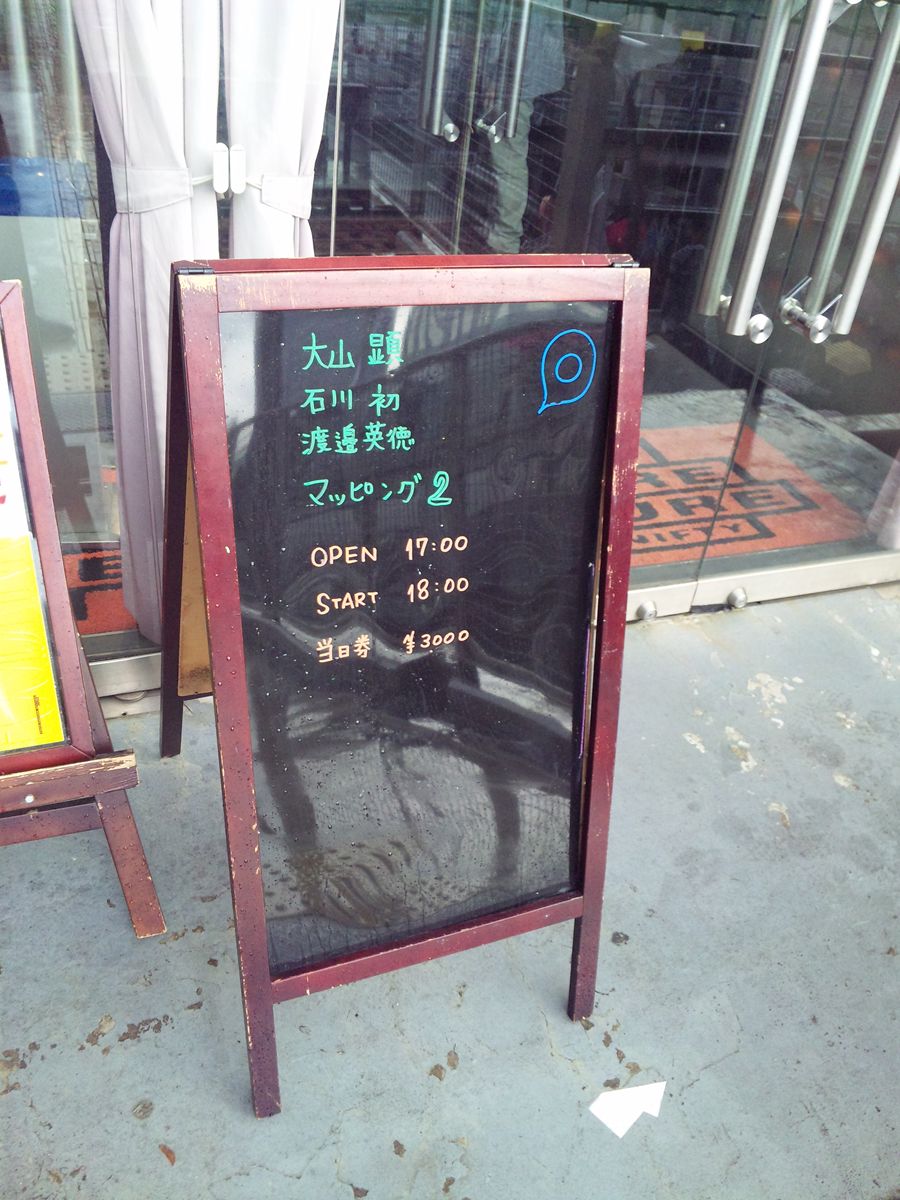 大山 顕
石川 初
渡邉英徳
マッピング2
OPEN 17:00
START 18:00
当日券 ¥3000
URE
NIFTY